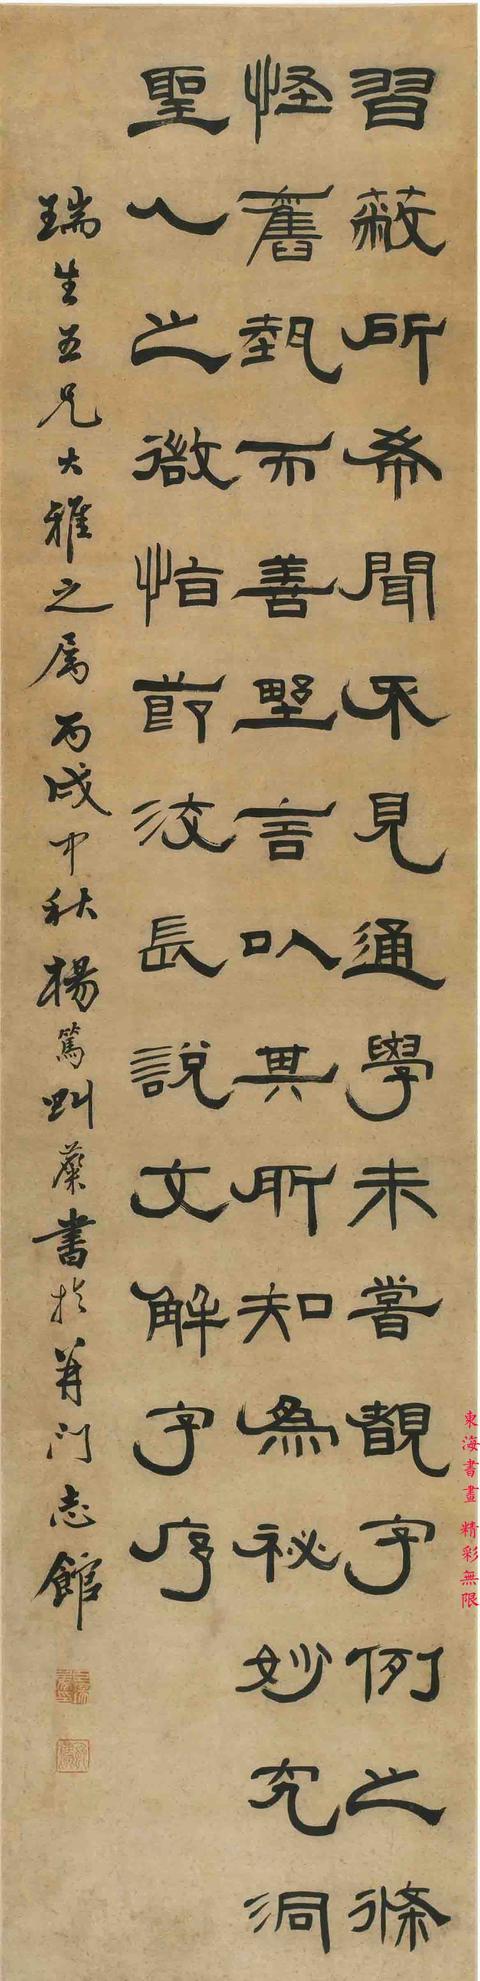 習蔽所希聞不見通學未嘗覩字例之條
怪舊埶而善野言以其所知為祕妙究洞
聖人之微恉節洨長說文解字序
瑞生五兄大雅之属丙戌中秋楊篤虯麋書於并門志館
東海書畫 精彩無限